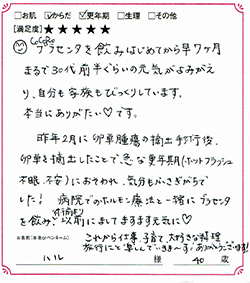 □お肌 ☑からだ ☑更年期 □生理 □その他
【満足度】★★★★★
CoCoRo
プラセンタを飲みはじめてから早7ヶ月
まるで30代前半ぐらいの元気がよみがえ
り、自分も家族もびっくりしています。
本当にありがたい♡です。
昨年2月に卵巣腫瘍の摘出手術後、
卵巣を摘出したことで、急な更年期(ホットフラッシュ
不眠、不安)におそわれ、気分もふさぎがちで
した! 病院でのホルモン療法と一緒にプラセンタ
を飲み、以前にもてますます元気に♡
これから仕事、子育て、大好きな料理、
旅行にと楽しんでいきまーす。ありがとうございます!
お名前(※本名orペンネーム)
ハル 様 40 歳